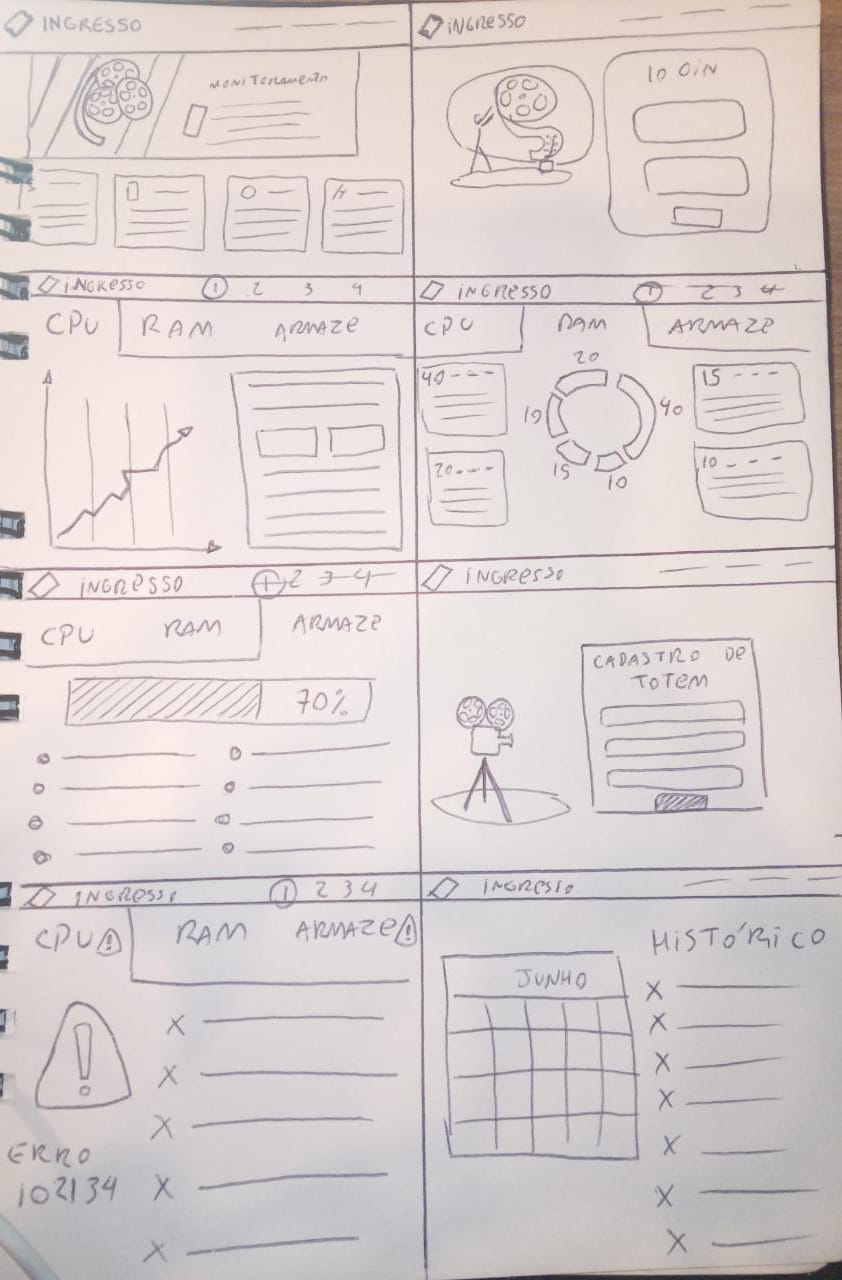 INGRESSO
MONITORAMENTO
INGRESSO
LOGIN
INGRESSO 1 2 3 4
CPU RAM ARMAZE
INGRESSO 1 2 3 4
CPU RAM ARMAZE
20
40
15
19
40
20
15
10
10
INGRESSO 1 2 3 4
CPU RAM ARMAZE
70%
INGRESSO
CADASTRO DE
TOTEM
INGRESSO 1 2 3 4
CPU ! RAM ARMAZE !
!
ERRO
102134
INGRESSO
HISTÓRICO
JUNHO
X
X
X
X
X
X
X
X
X
X
X
X